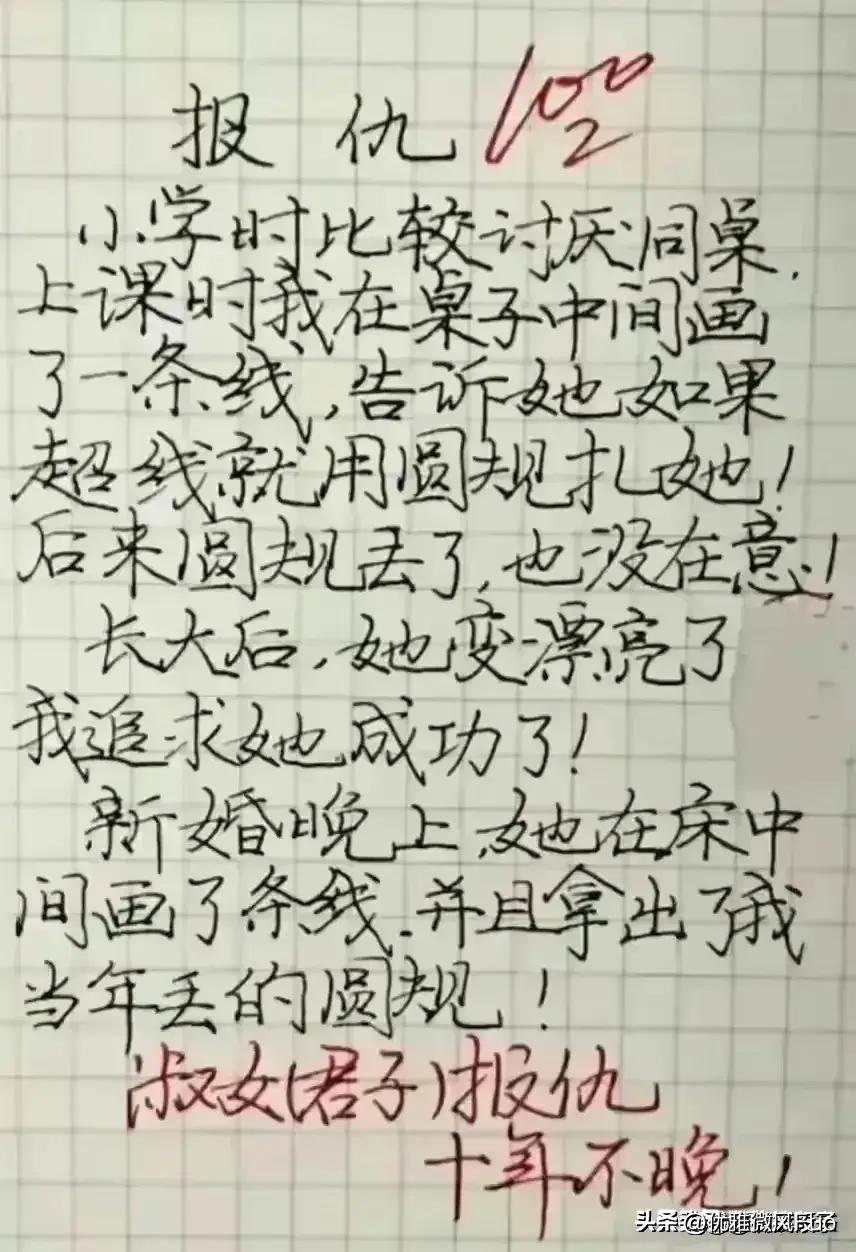 报仇 100
2
小学时比较讨厌同桌,
上课时我在桌子中间画
了一条线,告诉她如果
超线就用圆规扎她!
后来圆规丢了,也没在意!
长大后,她变漂亮了
我追求她成功了!
新婚晚上,她在床中
间画了条线.并且拿出了我
当年丢的圆规!
淑女(君子)报仇
十年不晚!
头条 @优雅微风段6